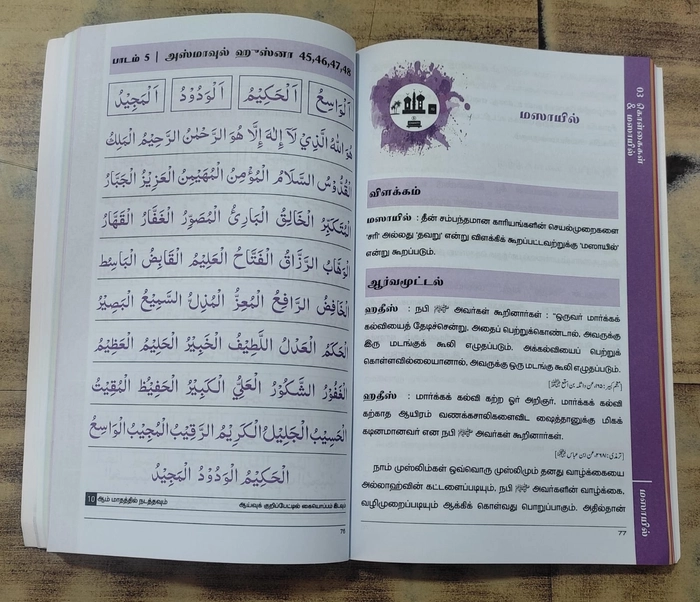 பாடம் 5 | அஸ்மாவுல் ஹுஸ்னா 45,46,47,48
اَلْوَاسِعُ اَلْحَكِيْمُ اَلْوَدُوْدُ اَلْمَجِيْدُ
هُوَ اللهُ الَّذِيْ لَآ اِلٰهَ اِلَّا هُوَ الرَّحْمٰنُ الرَّحِيْمُ الْمَلِكُ
الْقُدُّوْسُ السَّلَامُ الْمُؤْمِنُ الْمُهَيْمِنُ الْعَزِيْزُ الْجَبَّارُ
الْمُتَكَبِّرُ الْخَالِقُ الْبَارِئُ الْمُصَوِّرُ الْغَفَّارُ الْقَهَّارُ
الْوَهَّابُ الرَّزَّاقُ الْفَتَّاحُ الْعَلِيْمُ الْقَابِضُ الْبَاسِطُ
الْخَافِضُ الرَّافِعُ الْمُعِزُّ الْمُذِلُّ السَّمِيْعُ الْبَصِيْرُ
الْحَكَمُ الْعَدْلُ اللَّطِيْفُ الْخَبِيْرُ الْحَلِيْمُ الْعَظِيْمُ
الْغَفُوْرُ الشَّكُوْرُ الْعَلِيُّ الْكَبِيْرُ الْحَفِيْظُ الْمُقِيْتُ
الْحَسِيْبُ الْجَلِيْلُ الْكَرِيْمُ الرَّقِيْبُ الْمُجِيْبُ الْوَاسِعُ
الْحَكِيْمُ الْوَدُوْدُ الْمَجِيْدُ
10 ஆம் மாதத்தில் நடத்தவும் ஆய்வுக் குறிப்பேட்டில் கையொப்பம் இடவும்
76
மஸாயில்
விளக்கம்
மஸாயில் : தீன் சம்பந்தமான காரியங்களின் செயல்முறைகளை
'சரி' அல்லது 'தவறு' என்று விளக்கிக் கூறப்பட்டவற்றுக்கு 'மஸாயில்'
என்று கூறப்படும்.
ஆர்வமூட்டல்
ஹதீஸ் : நபி ﷺ அவர்கள் கூறினார்கள் : "ஒருவர் மார்க்கக்
கல்வியைத் தேடிச்சென்று, அதைப் பெற்றுக்கொண்டால், அவருக்கு
இரு மடங்குக் கூலி எழுதப்படும். அக்கல்வியைப் பெற்றுக்
கொள்ளவில்லையானால், அவருக்கு ஒரு மடங்கு கூலி எழுதப்படும்.
ஹதீஸ் : மார்க்கக் கல்வி கற்ற ஓர் அறிஞர், மார்க்கக் கல்வி
கற்காத ஆயிரம் வணக்கசாலிகளைவிட ஷைத்தானுக்கு மிகக்
கடினமானவர் என நபி ﷺ அவர்கள் கூறினார்கள்.
நாம் முஸ்லிம்கள் ஒவ்வொரு முஸ்லிமும் தனது வாழ்க்கையை
அல்லாஹ்வின் கட்டளைப்படியும், நபி ﷺ அவர்களின் வாழ்க்கை,
வழிமுறைப்படியும் ஆக்கிக் கொள்வது பொறுப்பாகும். அதில்தான்
77
03 கொள்கைகள்
& மஸாயில்
மஸாயில்